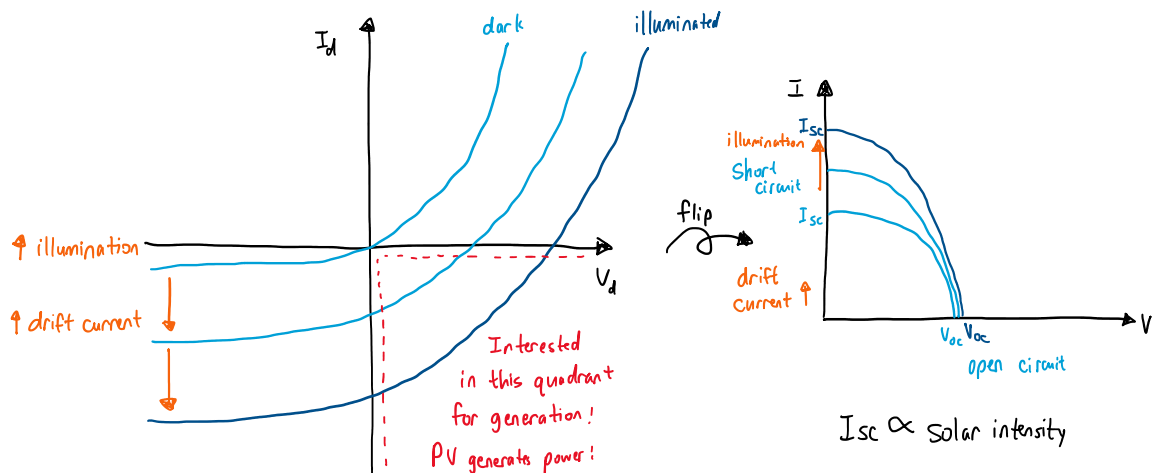 I_d
dark
illuminated
↑ illumination
↑ drift current
V_d
Interested
in this quadrant
for generation!
PV generates power!
flip
I
I_sc
illumination
Short
circuit
I_sc
drift
current ↑
V
V_oc V_oc
open circuit
I_sc ∝ solar intensity